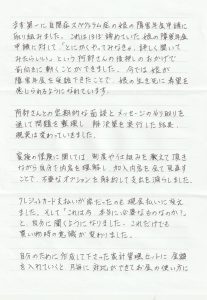 まず第一に自閉症スペクトラム症の娘の障害年金申請に
取り組みました。これはほぼ諦めていた娘の障害年金
申請に対して「とにかくやってみなきゃ、詳しく聞いて
みたらいい」という阿野さんの後押しのおかげで
前向きに動くことができました。今では娘が
障害年金を受給できたことで、娘の生き方に希望を
感じられるようになれています。
阿野さんとの定期的な面談とメッセージのやり取りを
通して問題を整理し、解決策を実行した結果、
現実は変わっていきました。
家族の保険に関しては、制度や仕組みを教えて頂き
ながら自分で内容を理解し、加入内容を全て見直す
ことで、不要なオプションを解約して支出を減らしました。
クレジットカード支払いが常だったのを現金払いに改え
ました。そして「これは今、本当に必要なものなのか?」
と、自分に聞くようになりました。これだけでも
買い物時の意識が変わりました。
自分のために作成して下さった家計管理シートに金額
を入れていくと、冷静に対処ができてお金の使い方に